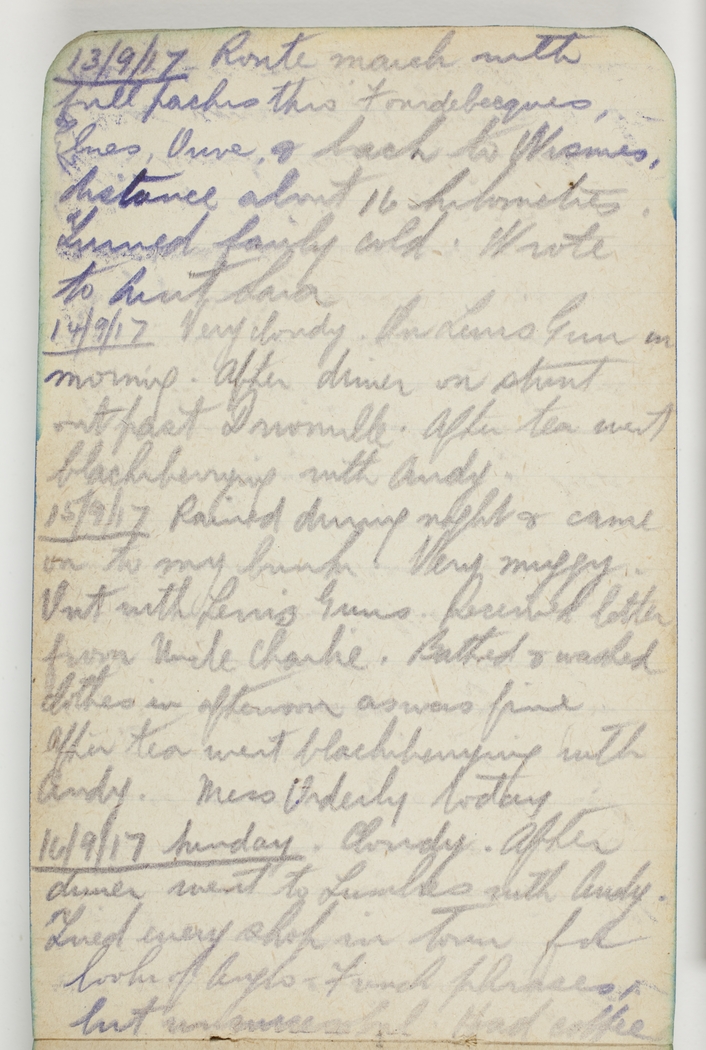 13/9/17 Route march with
full packs thro' Fourdebecques,
Elnes, Ouve, & back to Wismes,
distance about 16 kilometres.
Turned fairly cold. Wrote
to Aunt
14/9/17 Very cloudy. On Lewis Gun in
morning. After dinner on stunt
out past Drionville. After tea went
blackberrying with Andy.
15/9/17 Rained during night & came
on to my bunk. Very muggy.
Out with Lewis Guns. Received letter
from Uncle Charlie. Bathed & washed
clothes in afternoon as was fine
After tea went blackberrying with
Andy. Mess Orderly today
16/9/17 Sunday. Cloudy. After
dinner went to Lumbres with Andy.
Tried every shop in town for
books of Anglo-French phrases,
but unsuccessful. Had coffee